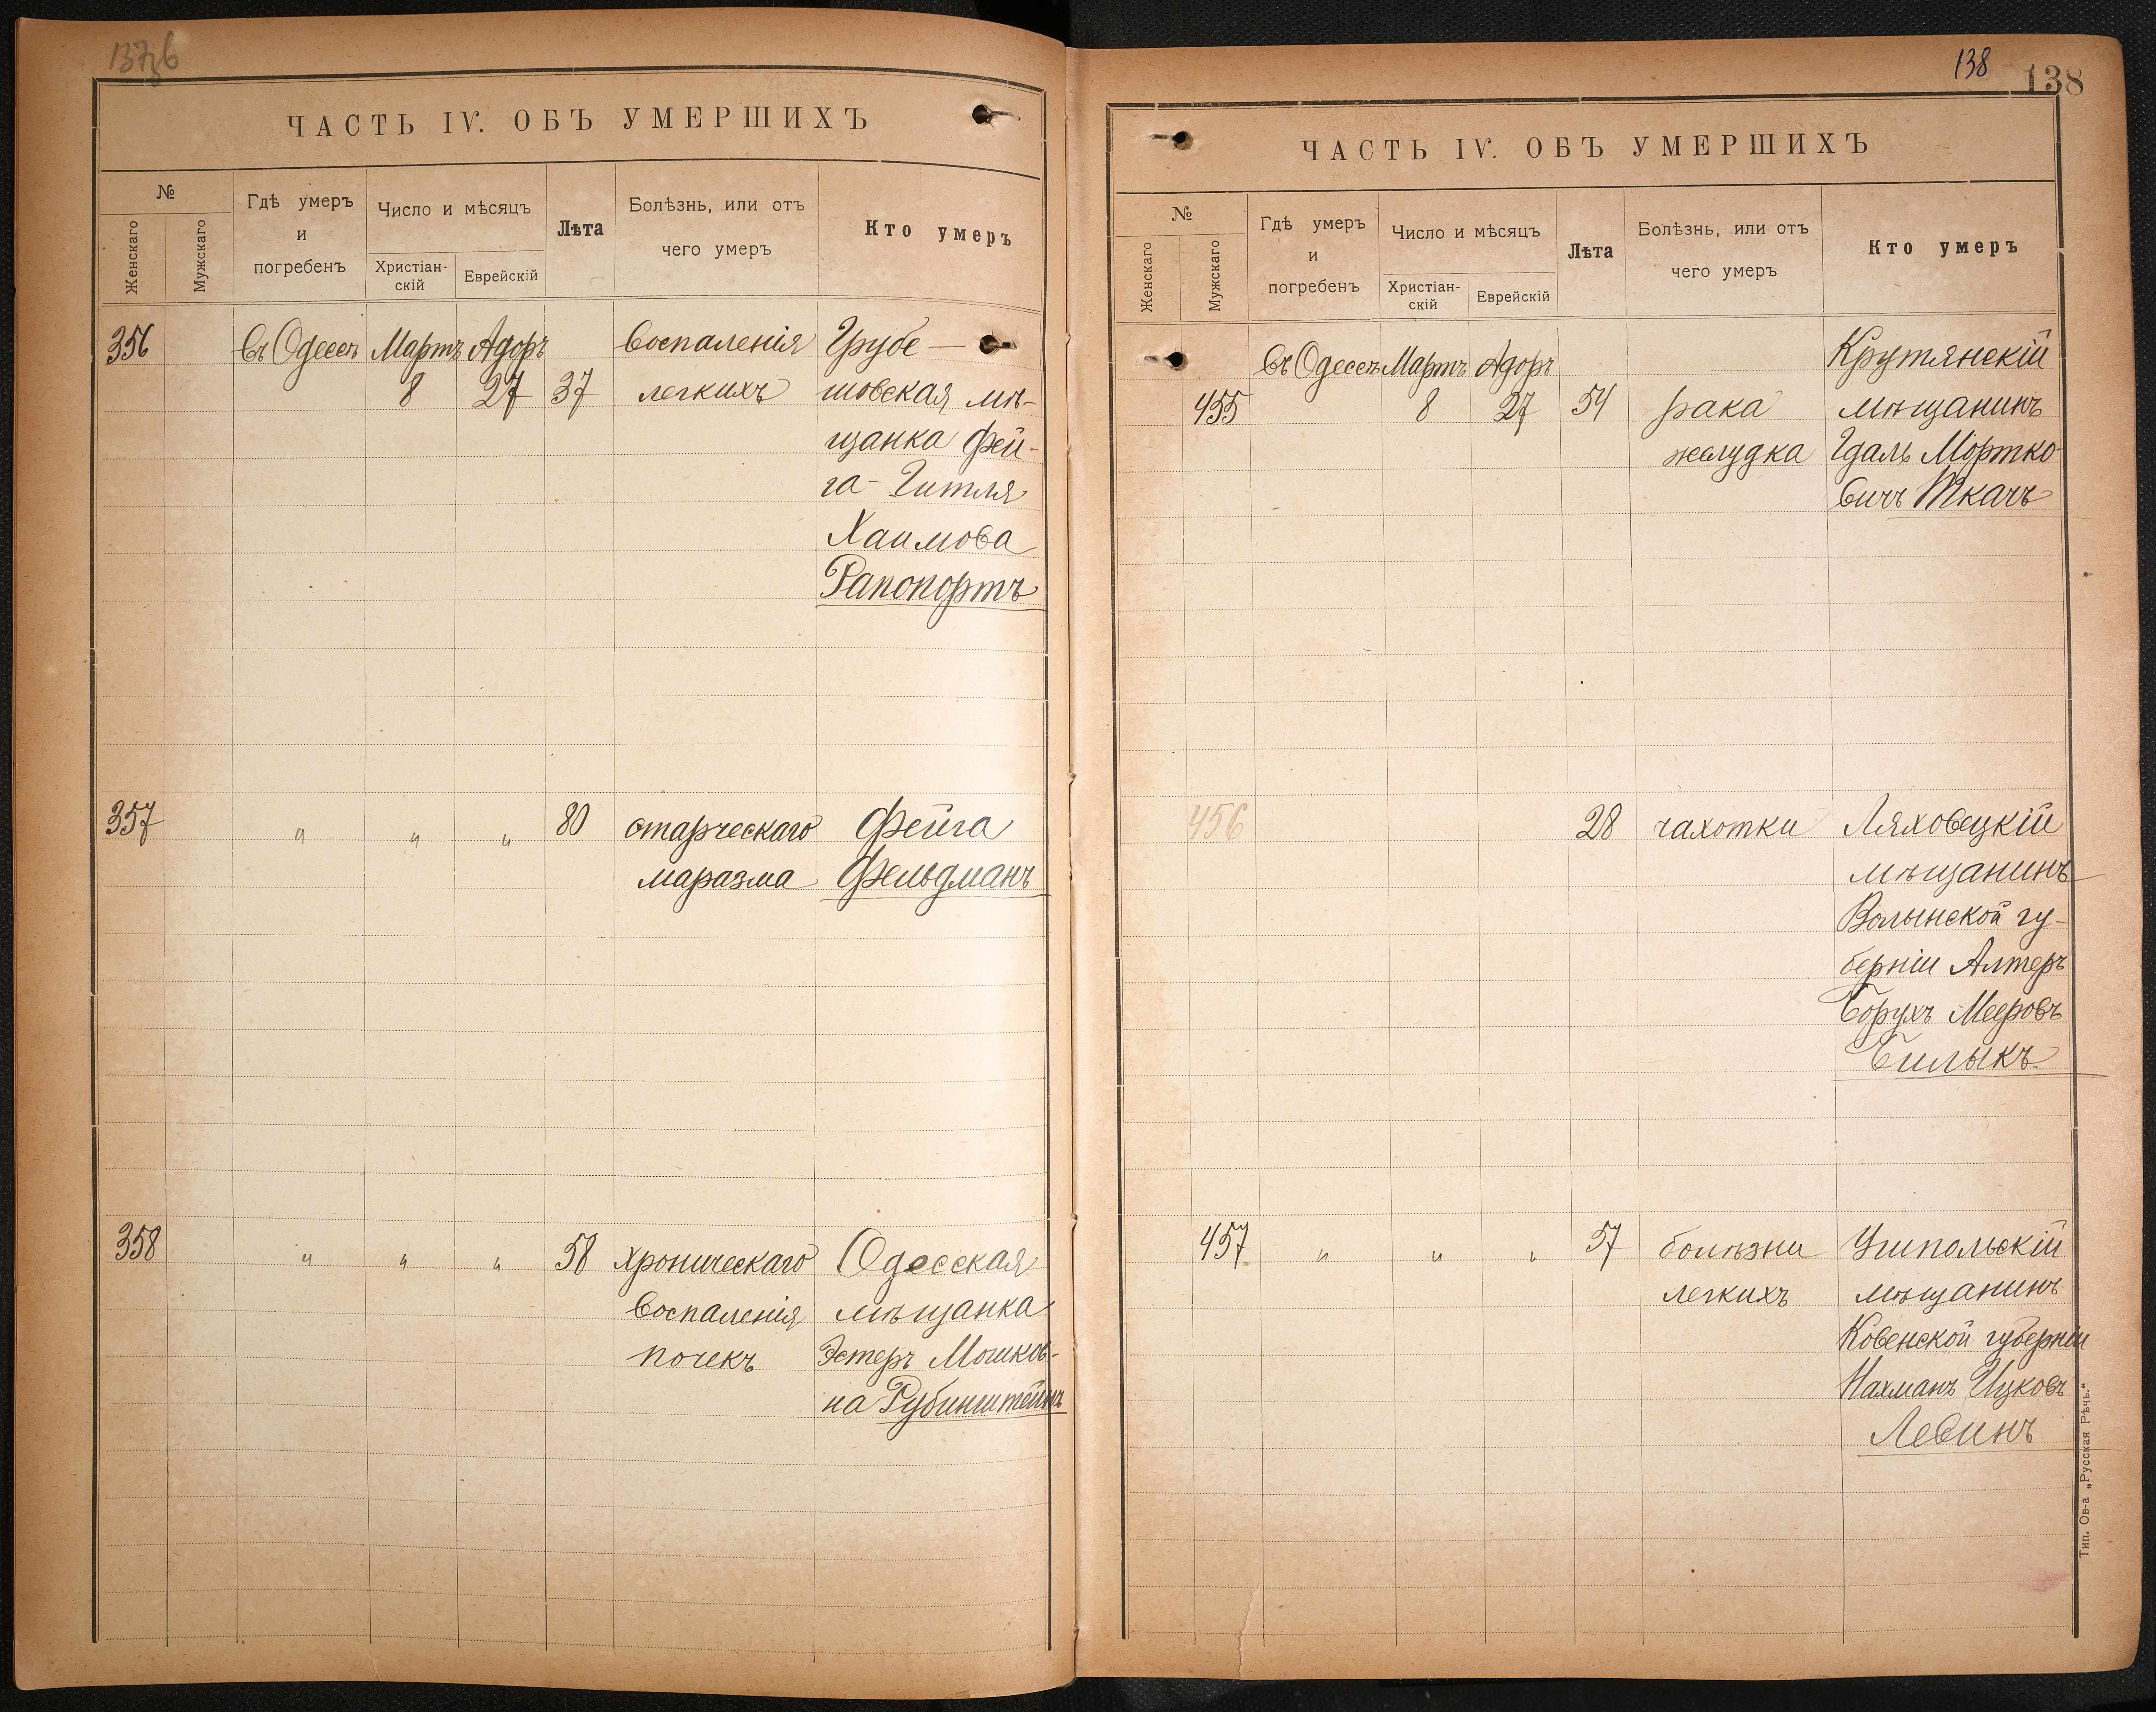 ЧАСТЬ IV. ОБЪ УМЕРШИХЪ
№
Женскаго
Мужскаго
Гдѣ умеръ
и
погребенъ
Число и мѣсяцъ
Христіан-
скій
Еврейскій
Лѣта
Болѣзнь, или отъ
чего умеръ
Кто умеръ
356 въ Одессѣ Мартъ Адоръ воспаленія Грубе-
8 27 37 легкихъ шовская мѣ-
щанка Фей-
га-Гитля
Хаимова
Рапопортъ
357 " " " 80 старческаго Фейга
маразма Фельдманъ
358 " " " 58 хроническаго Одесская
воспаленія мѣщанка
почекъ Эстеръ Мошков-
на Рубинштейнъ
138 138
ЧАСТЬ IV. ОБЪ УМЕРШИХЪ
№
Женскаго
Мужскаго
Гдѣ умеръ
и
погребенъ
Число и мѣсяцъ
Христіан-
скій
Еврейскій
Лѣта
Болѣзнь, или отъ
чего умеръ
Кто умеръ
въ Одессѣ Мартъ Адоръ Крутянскій
455 8 27 54 рака мѣщанинъ
желудка Гдаль Мортко-
вичъ Ткачъ
456 28 чахотки Ляховецкій
мѣщанинъ
Волынской гу-
берніи Алтеръ
Борухъ Мееровъ
Билыкъ
457 " " " 57 болѣзни Ушпольскій
легкихъ мѣщанинъ
Ковенской губерніи
Нахманъ Ицковъ
Левинъ
Тип. Ов-а „Русская Рѣчь."